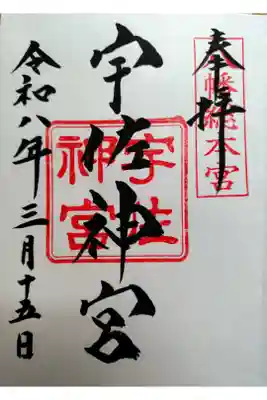 奉拝
八幡總本宮
宇佐神宮
宇佐神宮
令和八年三月十五日